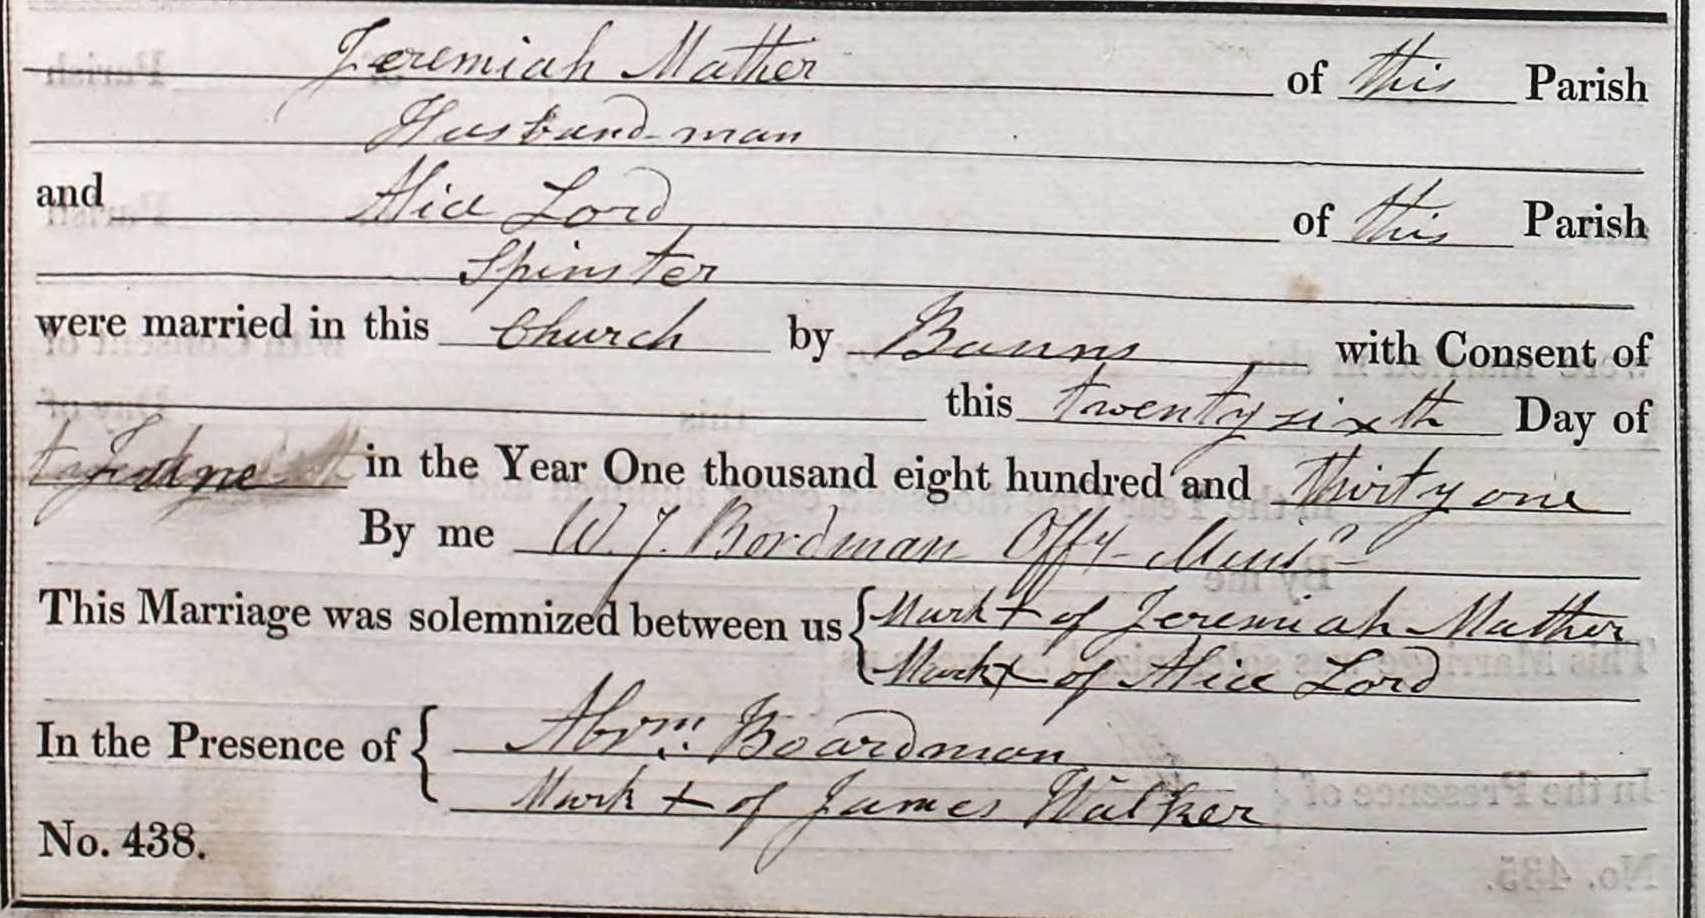 Jeremiah Mather of this Parish
Husband-man
and Alice Lord of this Parish
Spinster
were married in this Church by Banns with Consent of
this twenty sixth Day of
June in the Year One thousand eight hundred and thirty one
By me W. J. Bordman Offg Minr
This Marriage was solemnized between us { Mark + of Jeremiah Mather
Mark x of Alice Lord
In the Presence of { Abrm. Boardman
Mark + of James Walker
No. 438.